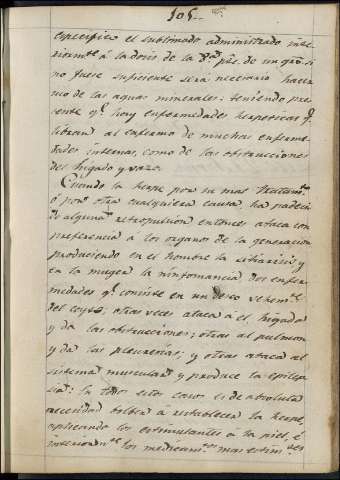 105
especifico el sublimado administrado inte
riormte. á la dosis de la 8ª pte. de un grano: si
no fuese suficiente será necesario hacer
uso de las aguas minerales: teniendo pre
sente q. hay enfermedades herpeticas q.
libran al enfermo de muchas enferme
dades internas, como de las obstrucciones
del higado y vazo.
Cuando la herpe por su mal tratamto.
ó por otra cualquiera causa, ha padeci
do alguna retropulsion entonces ataca con
preferencia á los organos de la generacion
produciendo en el hombre la satiriasis y
en la muger la ninfomancia dos enfer
medades q. consiste en un deseo vehemte.
del coyto; otras veces ataca á el higado
y da las obstrucciones; otras al pulmon
y da las pleuresias; y otras ataca al
sistema muscular y produce la epilep
sia: En todos estos casos es de absoluta
necesidad bolber á establecer la herpe,
aplicando los estimulantes á la piel, é
interiormte. los medicamtos. mas estimtes.